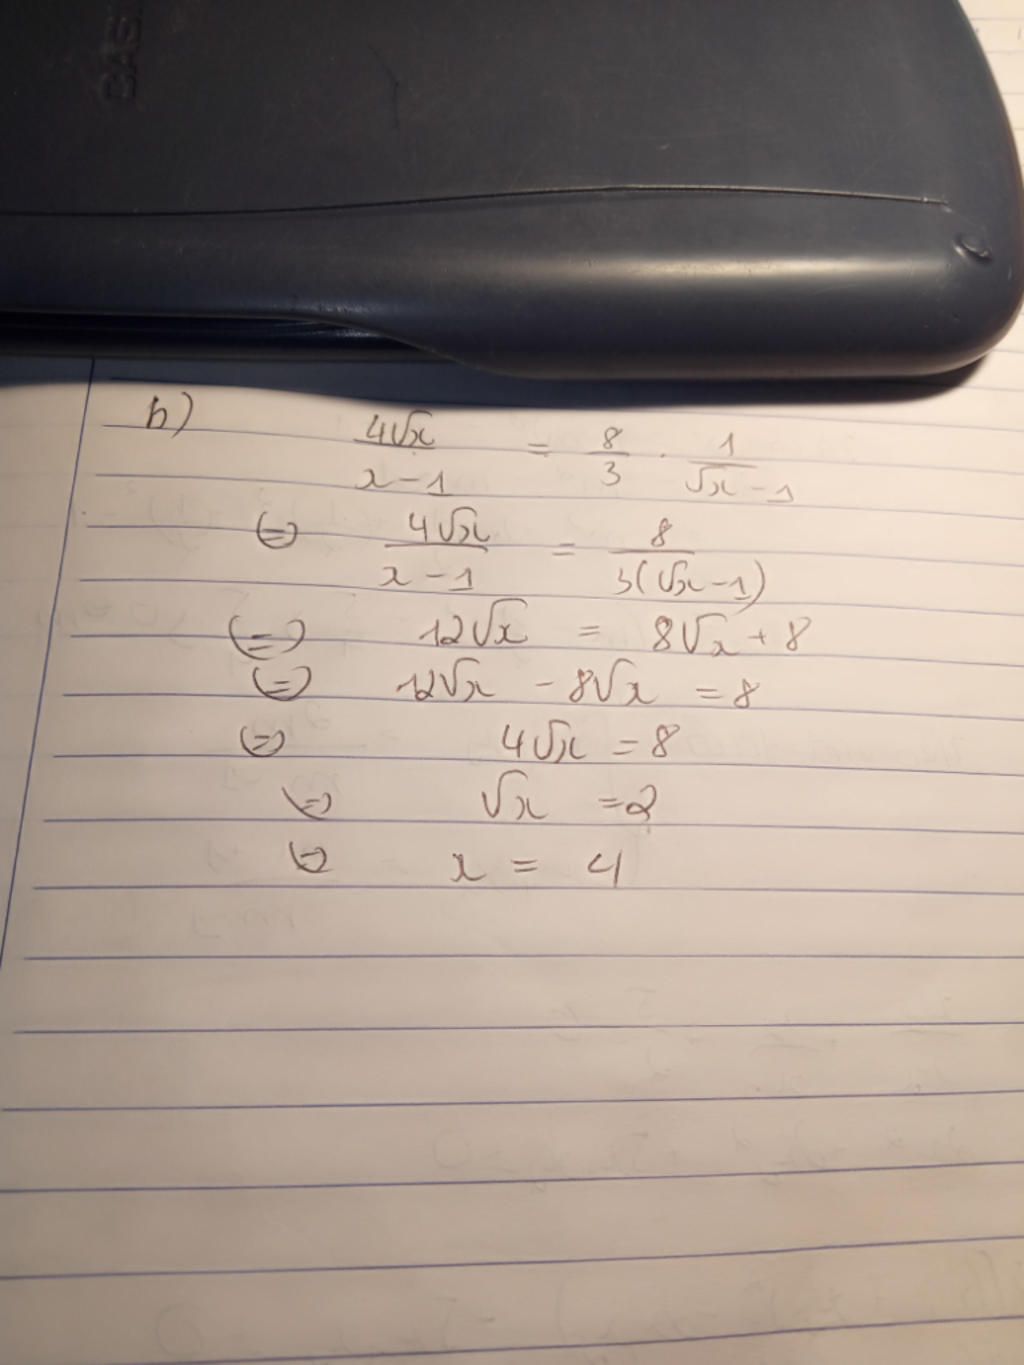 CAS
b) 4√x / x-1 = 8/3 . 1 / √x-1
(=) 4√x / x-1 = 8 / 3(√x-1)
(=) 12√x = 8√x + 8
(=) 12√x - 8√x = 8
(=) 4√x = 8
(=) √x = 2
(=) x = 4